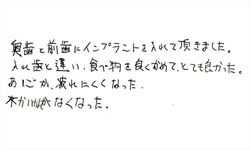 奥歯と前歯にインプラントを入れて頂きました。
入れ歯と違い、食べ物を良くかめて、とても良かった。
あごが、疲れにくくなった。
なくなった。